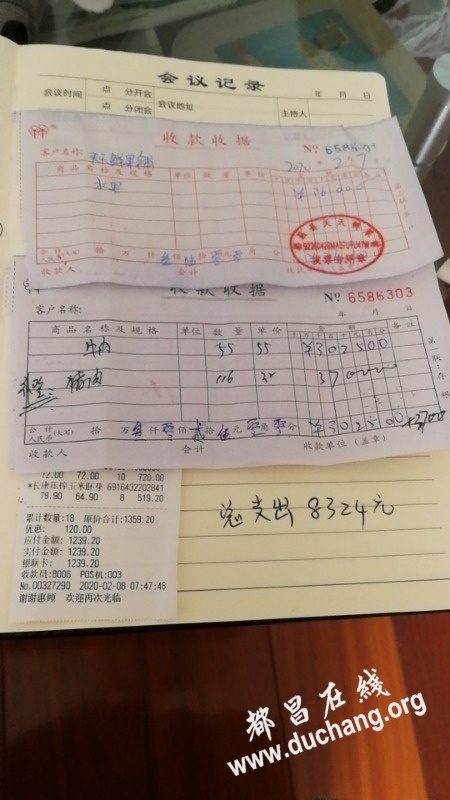 会议记录
会议时间 点 分开会 点 分闭会 会议地址 年 月 日 主持人
收款收据
客户名称: 天天鲜果铺 No 6586
2020 年 2 7
商品名称及规格 单位 数量 单价
水果 ¥36000
发票专用章
合计人民币(大写) 拾 万 仟 佰 拾 元 角 分
收款人 会计
收款收据
No 6586303
客户名称: 年 月 日
商品名称及规格 单位 数量 单价 金额 备注
牛肉 55 55 ¥302500
猪肉 116 32
合计人民币(大写) 拾 万 叁 仟 零 佰 贰 拾 伍 元 零 角 零 分 ¥302500 +3700
收款人 会计 收款单位(盖章)
72.00 72.00 10 720.00
*长康压榨玉米胚芽 6916432202841
79.90 64.90 8 519.20
累计数量:18 原价合计:1359.20
优惠: 120.00
应付金额: 1239.20
实付金额: 1239.20
银联卡: 1239.20
收款员:8006 POS机:003
No.00327290 2020-02-08 07:47:48
谢谢惠顾 欢迎再次光临
总支出 8324元
都昌在线
www.duchang.org